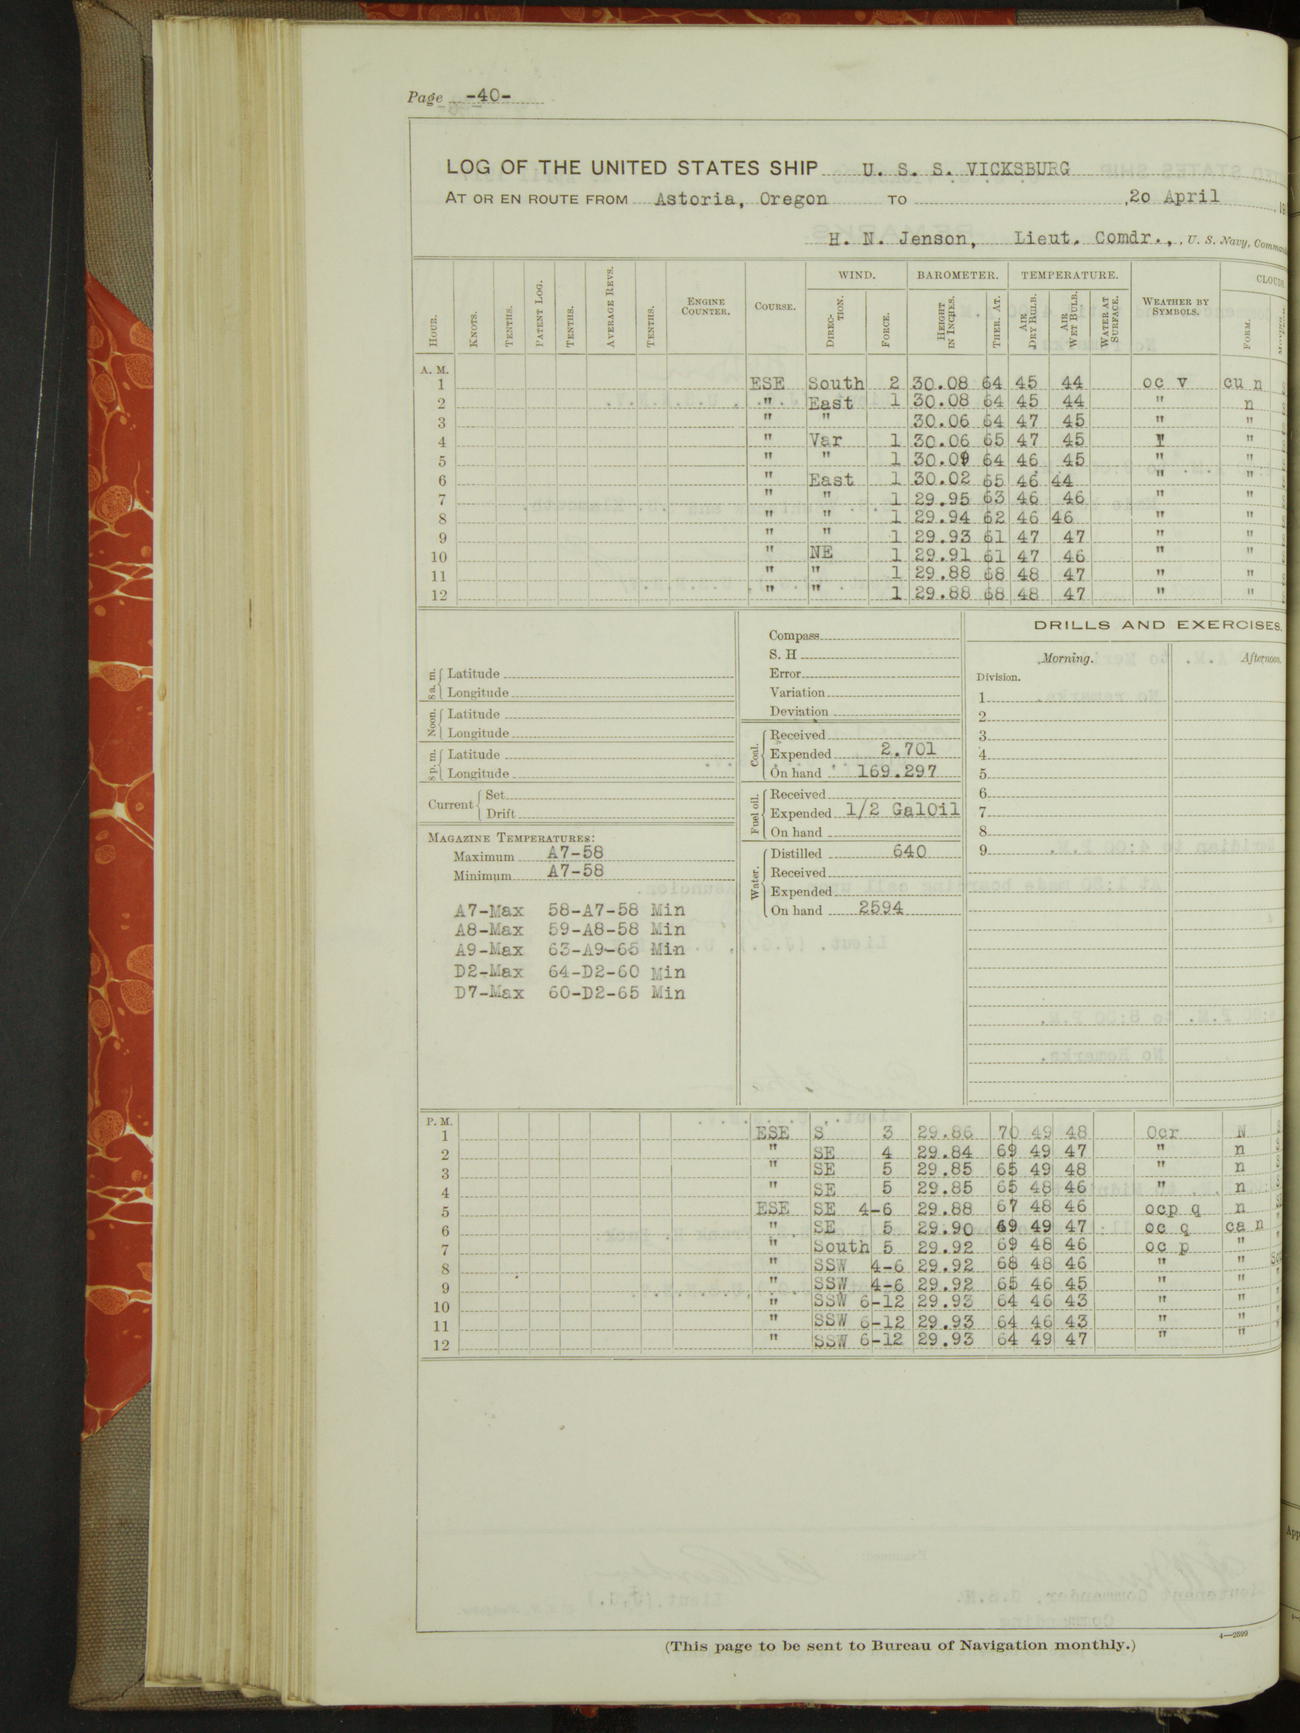 Page -40-
LOG OF THE UNITED STATES SHIP U. S. S. VICKSBURG
AT OR EN ROUTE FROM Astoria, Oregon TO , 20 April
H. N. Jenson, Lieut. Comdr., U. S. Navy,
WIND. BAROMETER. TEMPERATURE.
HOUR. KNOTS. TENTHS. PATENT LOG. TENTHS. AVERAGE REVS. TENTHS. ENGINE COUNTER. COURSE. DIRECTION. FORCE. HEIGHT IN INCHES. THER. AT. AIR DRY BULB. AIR WET BULB. WATER AT SURFACE. WEATHER BY SYMBOLS. FORM.
A. M.
1 ESE South 2 30.08 64 45 44 oc v cu n
2 " East 1 30.08 64 45 44 " n
3 " " 30.06 64 47 45 " "
4 " Var 1 30.06 65 47 45 "
5 " " 1 64 46 45 " "
6 " East 1 30.02 65 46 44 " "
7 " " 1 29.95 63 46 46 " "
8 " " 1 29.94 62 46 46 " "
9 " " 1 29.93 61 47 47 " "
10 " NE 1 29.91 61 47 46 " "
11 " " 1 29.88 68 48 47 " "
12 " " 1 29.88 68 48 47 " "
8 a. m. Latitude
Longitude
Noon. Latitude
Longitude
8 p. m. Latitude
Longitude
Current Set
Drift
MAGAZINE TEMPERATURES:
Maximum A7-58
Minimum A7-58
A7-Max 58-A7-58 Min
A8-Max 59-A8-58 Min
A9-Max 63-A9-65 Min
D2-Max 64-D2-60 Min
D7-Max 60-D2-65 Min
Compass
S. H
Error
Variation
Deviation
Coal. Received
Expended 2.701
On hand 169.297
Fuel oil. Received
Expended 1/2 GalOil
On hand
Water. Distilled 640
Received
Expended
On hand 2594
DRILLS AND EXERCISES.
Morning. Afternoon.
Division.
1
2
3
4
5
6
7
8
9
P. M.
1 ESE S 3 29.86 70 49 48 Ocr N
2 " SE 4 29.84 69 49 47 " n
3 " SE 5 29.85 65 49 48 " n
4 " SE 5 29.85 65 48 46 " n
5 ESE SE 4-6 29.88 67 48 46 ocp q n
6 " SE 5 29.90 69 49 47 oc q ca n
7 " South 5 29.92 69 48 46 oc p "
8 " SSW 4-6 29.92 68 48 46 " "
9 " SSW 4-6 29.92 65 46 45 " "
10 " SSW 6-12 29.93 64 46 43 " "
11 " SSW 6-12 29.93 64 46 43 " "
12 " SSW 6-12 29.93 64 49 47 " "
(This page to be sent to Bureau of Navigation monthly.)
4—2599